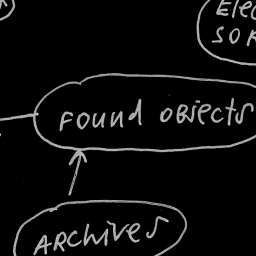 Elec
SOF
Found objects
ARChives